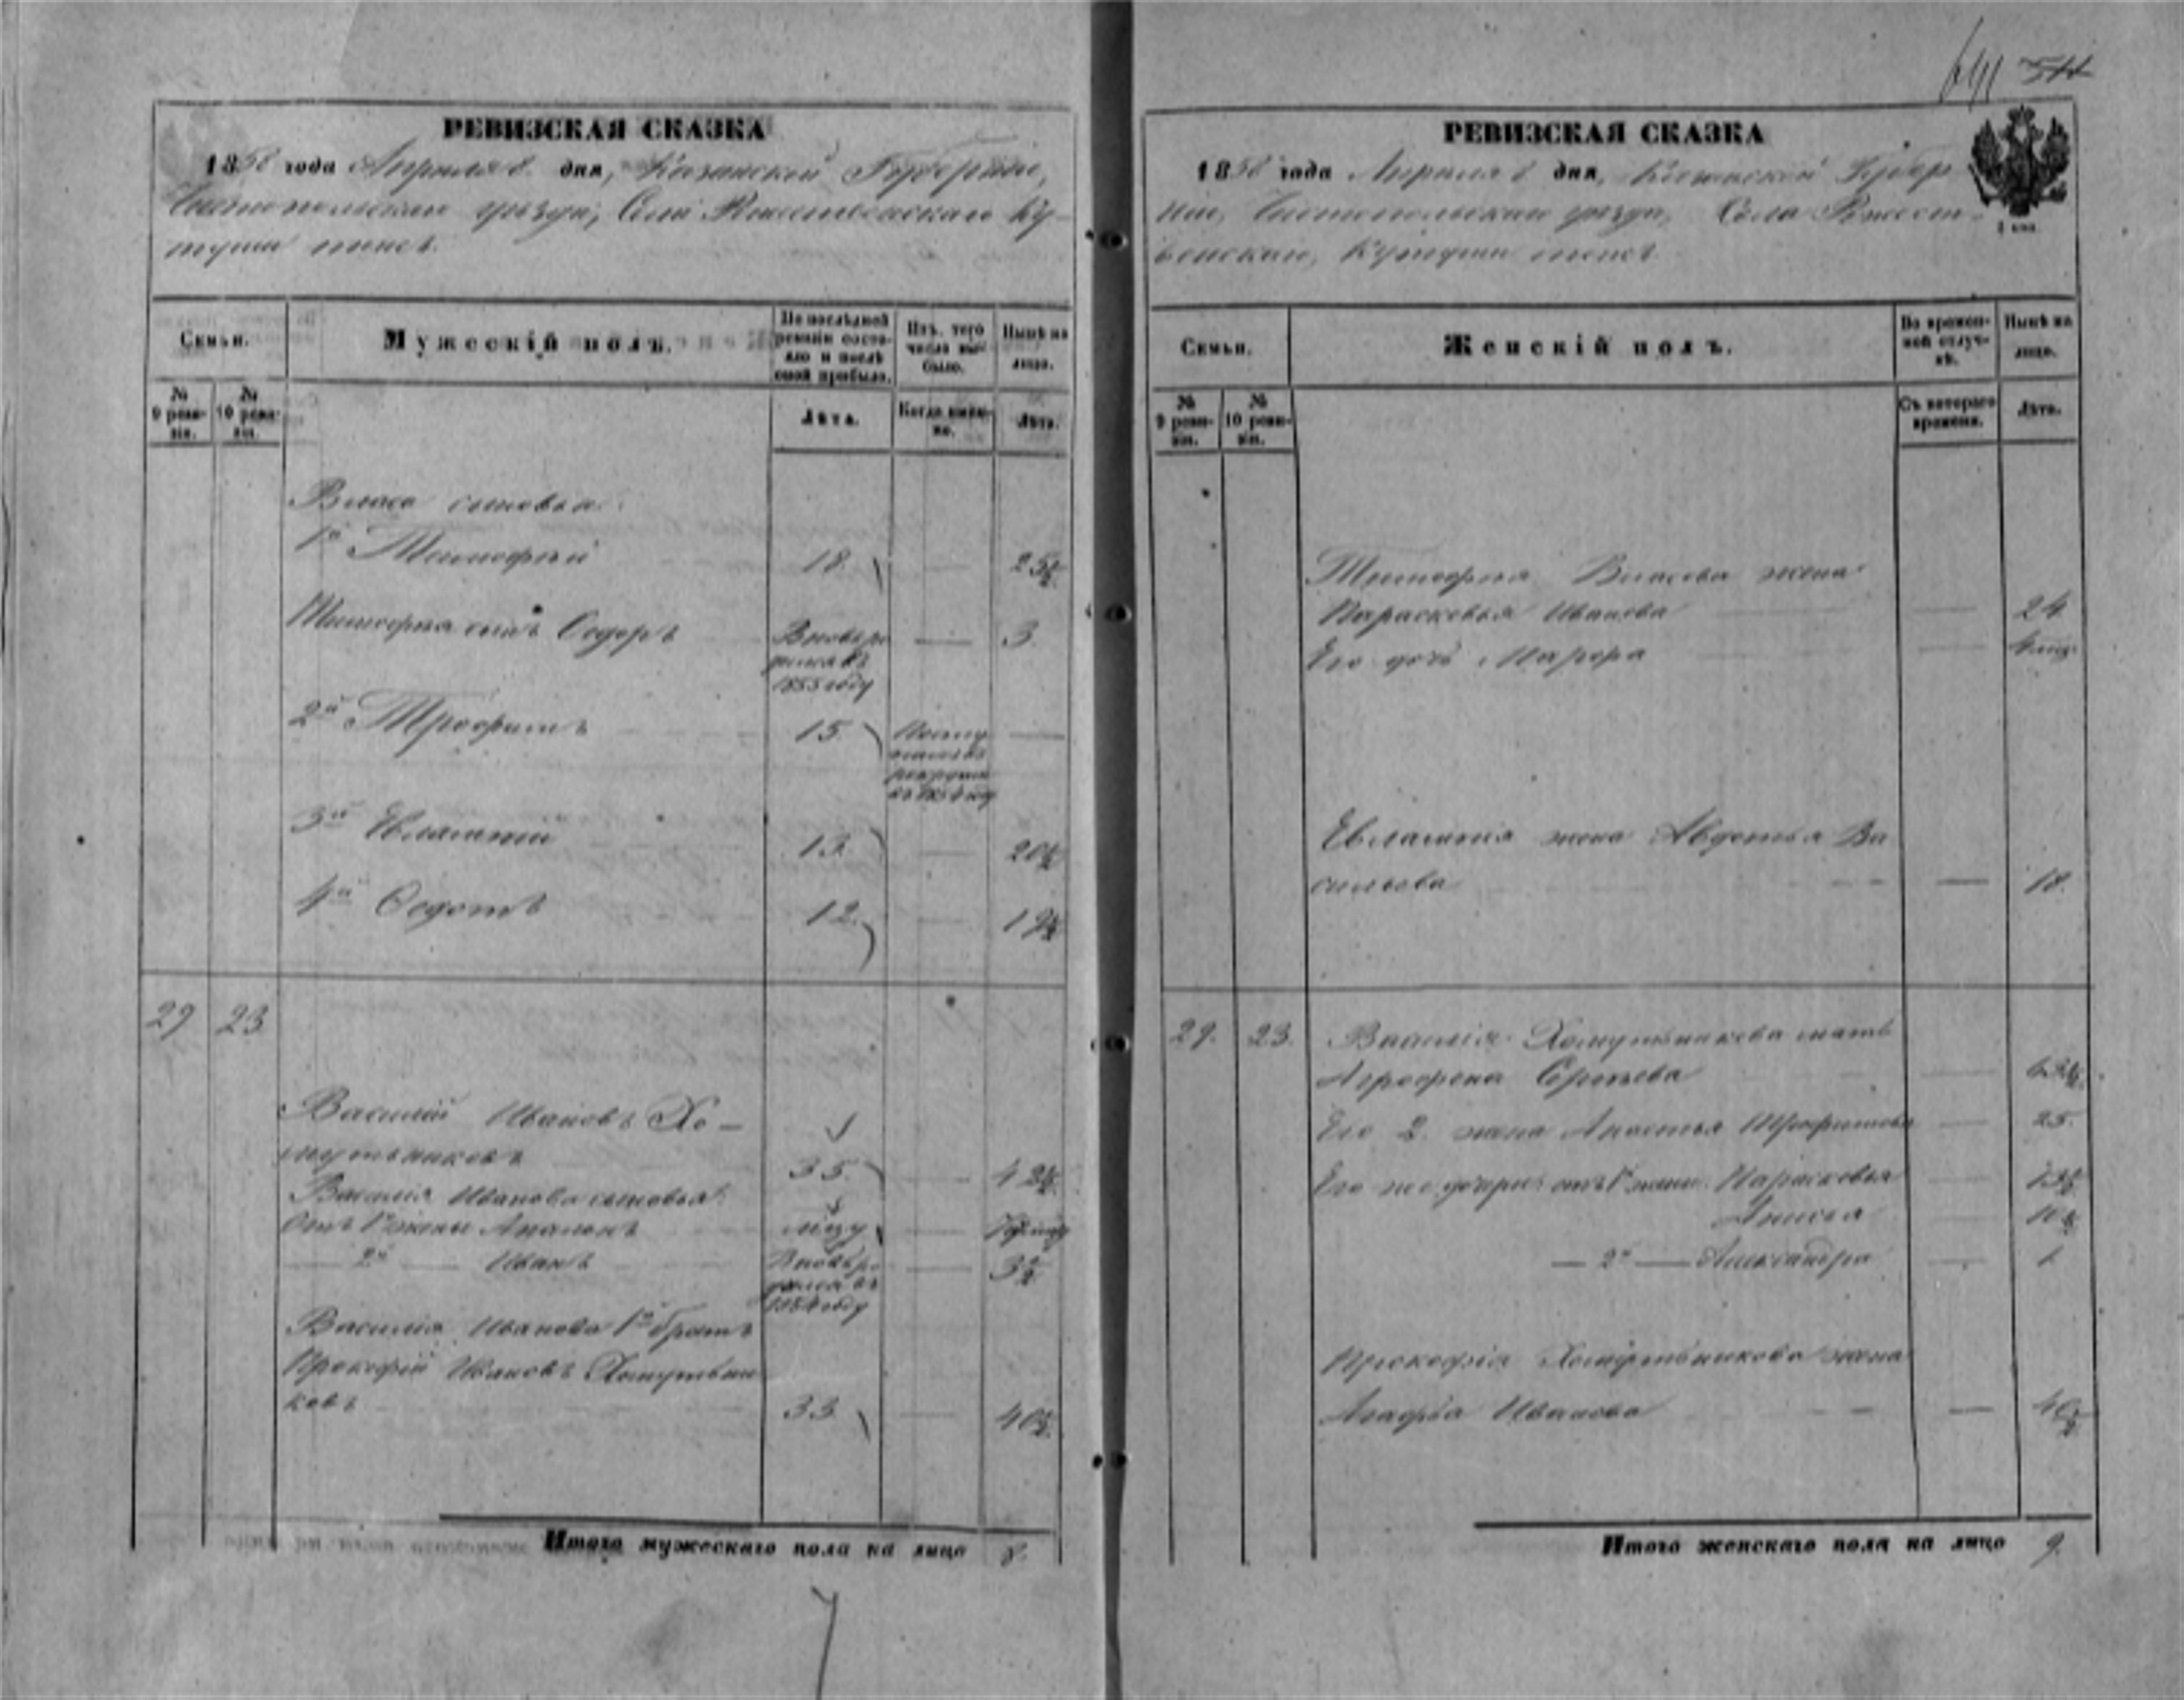 641 511
РЕВИЗСКАЯ СКАЗКА
1858 года Апреля 8 дня, Казанской Губернiи,
Чистопольскаго уѣзда, Села Рождественскаго Ку-
туши тожъ.
Семьи.
Мужескiй полъ.
По послѣдней ревизiи состо-яло и послѣ оной прибыло.
Изъ того числа вы-было.
Нынѣ на лицо.
№ 9 реви-зiи.
№ 10 реви-зiи.
Лѣта.
Когда имен-но.
Лѣта.
Власа сыновья
1й Тимофѣй 18 — 25½
Тимофея сынъ Ѳедоръ Вновь ро- — 3.
дился въ
1855 году
2й Трофимъ 15. —
3й Евлампiй 13. — 20½
4й Ѳедотъ 12. — 19½
29 23
Василiй Ивановъ Хо-
мутьниковъ 35. — 42½
Василiя Иванова сыновья
отъ 1 жены —
— 2й — Иванъ Вновь ро- — 3½
дился въ
1854 году
Василiя Иванова 1й братъ
Прокофiй Ивановъ Хомутьни
ковъ 33 — 40½
Итого мужескаго пола на лицо 8.
РЕВИЗСКАЯ СКАЗКА
1858 года Апреля 8 дня, Казанской Губер
нiи, Чистопольскаго уѣзда, Села Рождест-
венскаго, Кутуши тожъ
Семьи.
Женскiй полъ.
Во времен-ной отлуч-кѣ.
Нынѣ на лицо.
№ 9 реви-зiи.
№ 10 реви-зiи.
Съ котораго времени.
Лѣта.
Тимофея Власова жена
Парасковья Иванова — 24
Его дочь —
Евлампия жена Авдотья Ва
сильева — 18.
29. 23. Василiя Хомутьникова мать
Аграфена Сергѣева —
Его 2. жена Анастья Трофимова — 25.
Его же дочери: отъ 1й жены Парасковья — 13½
Анисья — 10½
— 2й — Александра — 1
Прокофiя Хомутьникова жена
Агафья Иванова — 40½
Итого женскаго пола на лицо 9.